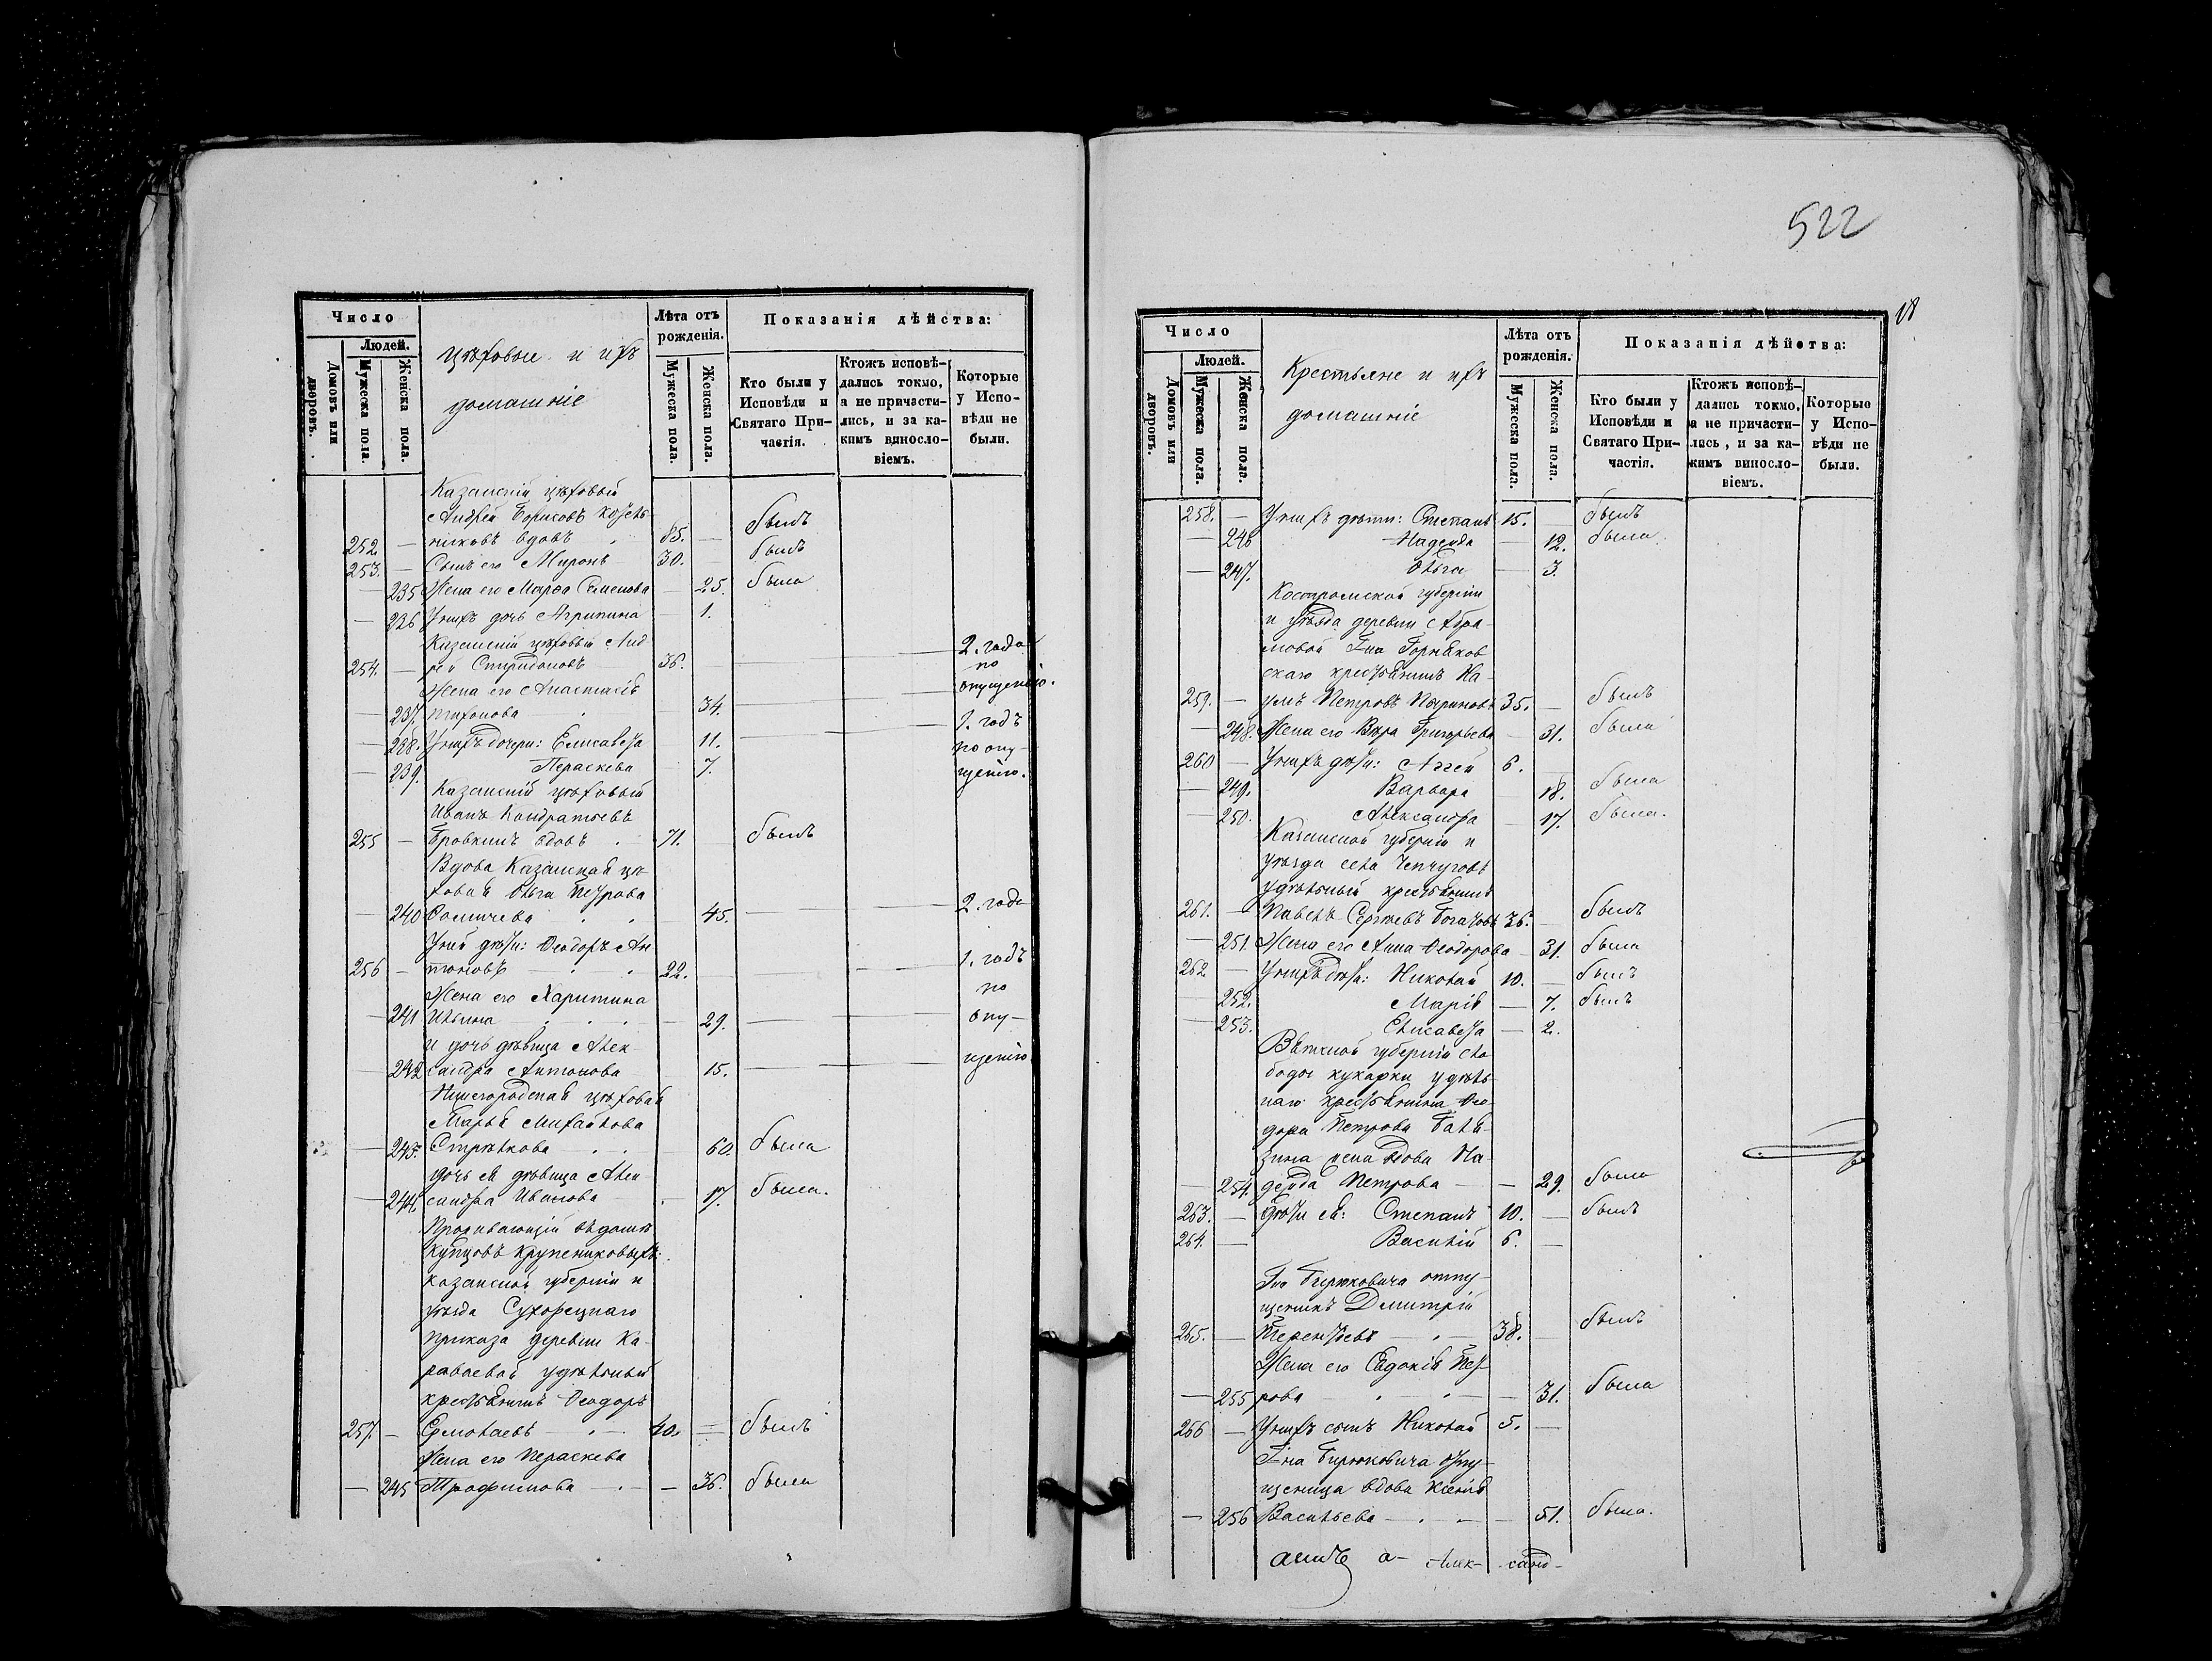 Число
Людей.
Домовъ или дворовъ.
Мужеска пола.
Женска пола.
Цѣховые и ихъ
домашніе
Лѣта отъ рожденія.
Мужеска пола.
Женска пола.
Показанія дѣйства:
Кто были у Исповѣди и Святаго Причастія.
Ктожъ исповѣдались токмо, а не причастились, и за какимъ винословіемъ.
Которые у Исповѣди не были.
Казанскій цѣховый
Андрей Борисовъ
252. — вдовъ 85. — былъ
253. — Сынъ его Миронъ 30. — былъ
— 235 Жена его Марфа Семенова — 25. была
— 236 У нихъ дочь Агрипина — 1.
Казанскій цѣховый Анд
254. — рей Спиридоновъ 36. — 2. года
по
опущенію.
Жена его Анастасія
— 237. Тихонова — 34.
— 238. У нихъ дочери: Елисавета — 11. — 1. годъ
по опу-
— 239. Параскева — 7. щенію.
Казанскій цѣховый
Иванъ Кондратьевъ
255 — Бровкинъ вдовъ 71. — былъ
Вдова Казанская цѣ
ховая Ольга Петрова
— 240 Фомичева 45. — 2. года
У ней дѣти: Ѳеодоръ Ан
256 — тоновъ 22. — 1. годъ
по
Жена его Харитина
— 241 Ильина — 29. — опу-
и дочь дѣвица Алек-
— 242 сандра Антонова 15. — щенію
Нижегородская цѣховая
Марья Михайлова
— 243. Стрѣлкова — 60. была
дочь ея дѣвица Алек
— 244. сандра Иванова — 17. была.
Проживающій въ домѣ
купцовъ Крупениковыхъ:
Казанской губерніи и
уѣзда Сухорецкаго
приказа деревни Ка-
раваевой удѣльный
крестьянинъ Ѳеодоръ
257. — Ермолаевъ — 40. — былъ
Жена его Параскева
— 245 Трофимова — 36. была
522
18
Число
Людей.
Домовъ или дворовъ.
Мужеска пола.
Женска пола.
Крестьяне и ихъ
домашніе
Лѣта отъ рожденія.
Мужеска пола.
Женска пола.
Показанія дѣйства:
Кто были у Исповѣди и Святаго Причастія.
Ктожъ исповѣдались токмо, а не причастились, и за какимъ винословіемъ.
Которые у Исповѣди не были.
258. — У нихъ дѣти: Степанъ 15. — былъ
— 246 Надежда — 12. была.
— 247. Ольга — 3.
Костромской губерніи
и уѣзда деревни Абра-
мовой Гна
скаго крестьянинъ На-
259. — умъ Петровъ 35. — былъ
— 248. Жена его Вѣра Григорьева — 31. была
260 — У нихъ дѣти: Аггей 6. —
— 249. Варвара — 18. была
— 250. Александра — 17. была.
Казанской губерніи и
уѣзда села Чепчуговъ
удѣльный крестьянинъ
261. — Павелъ Сергѣевъ Богачовъ 36. — былъ
— 251. Жена его Анна Ѳеодорова — 31. была
262. — У нихъ дѣти: Николай 10. — былъ
— 252. Марія — 7. былъ
— 253. Елисавета — 2.
Вятской губерніи сло
боды кукарки удѣль
наго крестьянина Ѳео-
дора Петрова
жена вдова На-
— 254. дежда Петрова — 29. была
263. — дѣти ея: Степанъ 10. — былъ
264. — Василій 6. —
Гна Бирюковича отпу-
щенникъ Димитрій
265. — Терентьевъ — 38. — былъ
Жена его Евдокія Пет-
— 255 рова — 31. была
266 — У нихъ сынъ Николай 5. —
Гна Бирюковича отпу-
щеница вдова Ксенія
— 256 Васильева — 51. была.
а- Алек- санд-